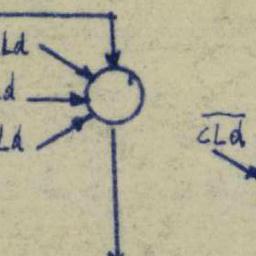 Ld
d
Ld
c̅L̅d̅